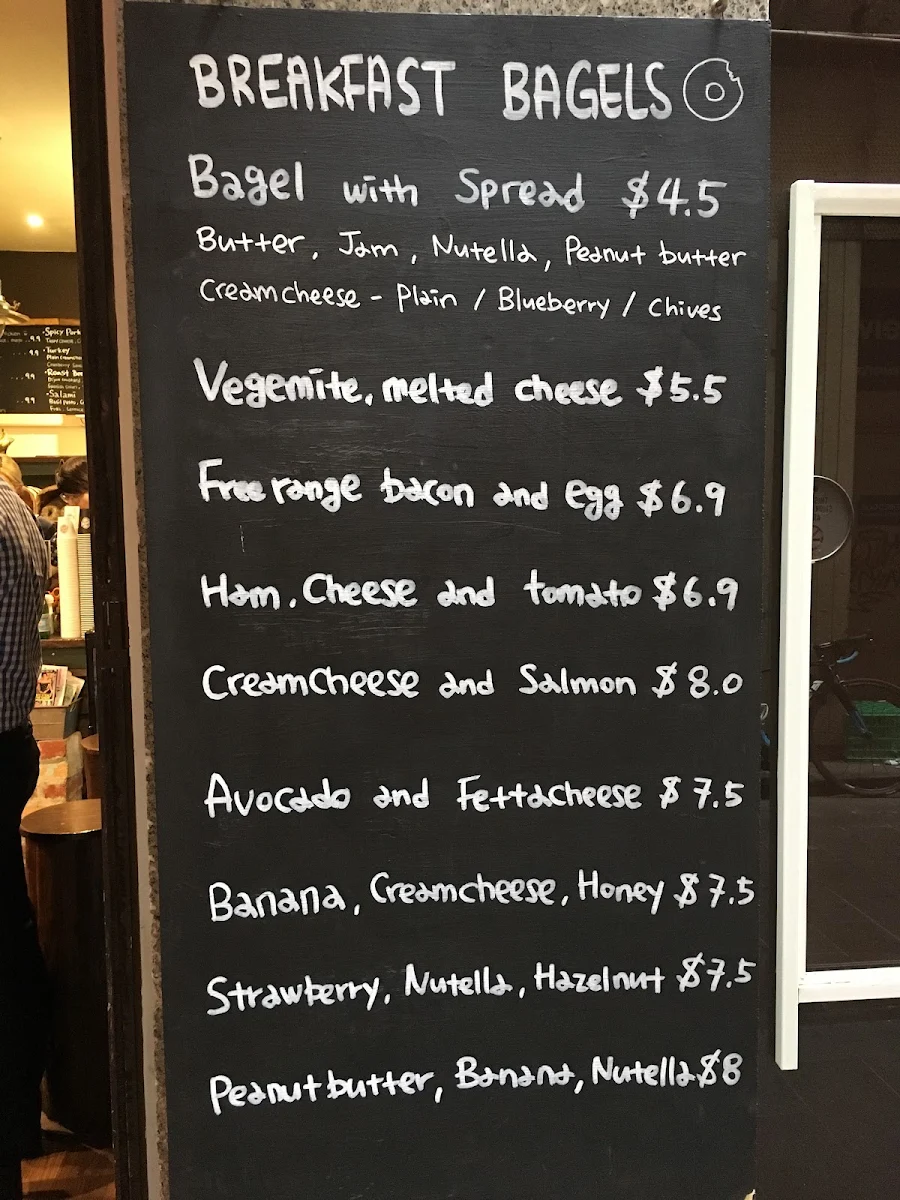 BREAKFAST BAGELS
Bagel with Spread $4.5
Butter, Jam, Nutella, Peanut butter
Creamcheese - Plain / Blueberry / Chives
Vegemite, melted cheese $5.5
Free range bacon and egg $6.9
Ham, Cheese and tomato $6.9
CreamCheese and Salmon $8.0
Avocado and Fettacheese $7.5
Banana, Creamcheese, Honey $7.5
Strawberry, Nutella, Hazelnut $7.5
Peanut butter, Banana, Nutella $8
Spicy Pork
9.9
Turkey
9.9
Roast
9.9
Salami
9.9